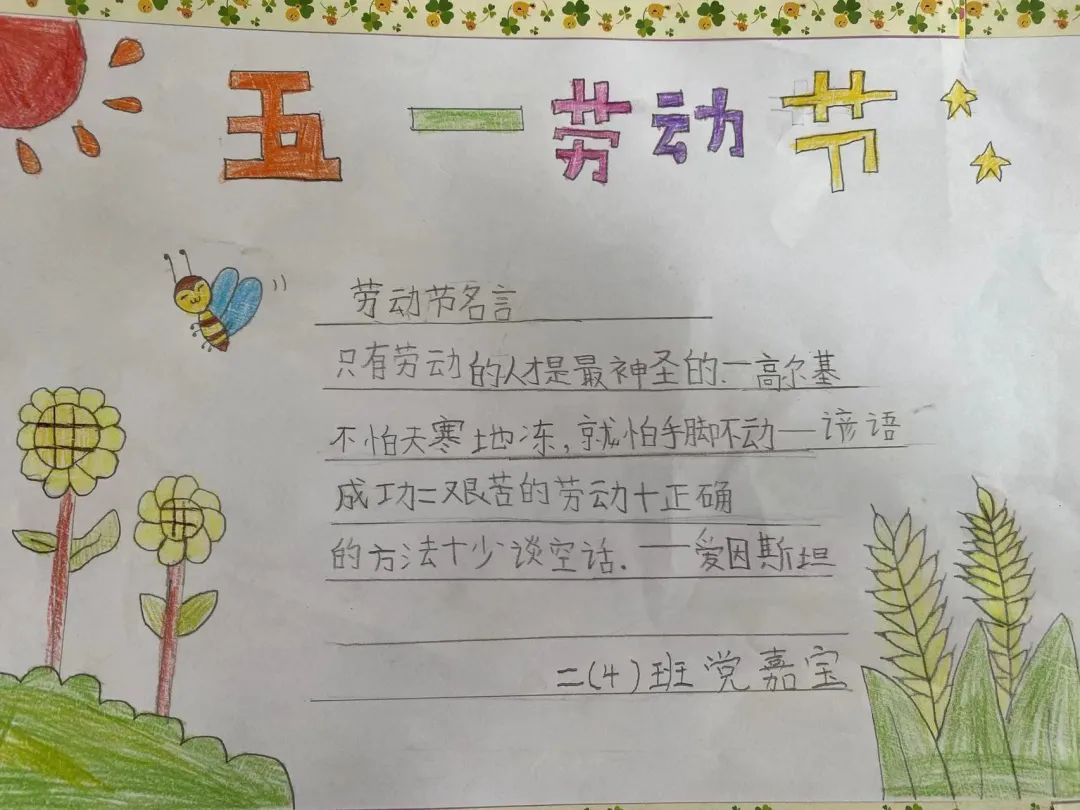 五一劳动节
劳动节名言
只有劳动的人才是最神圣的.一高尔基
不怕天寒地冻,就怕手脚不动——谚语
成功=艰苦的劳动+正确
的方法+少谈空话.——爱因斯坦
二(4)班党嘉宝